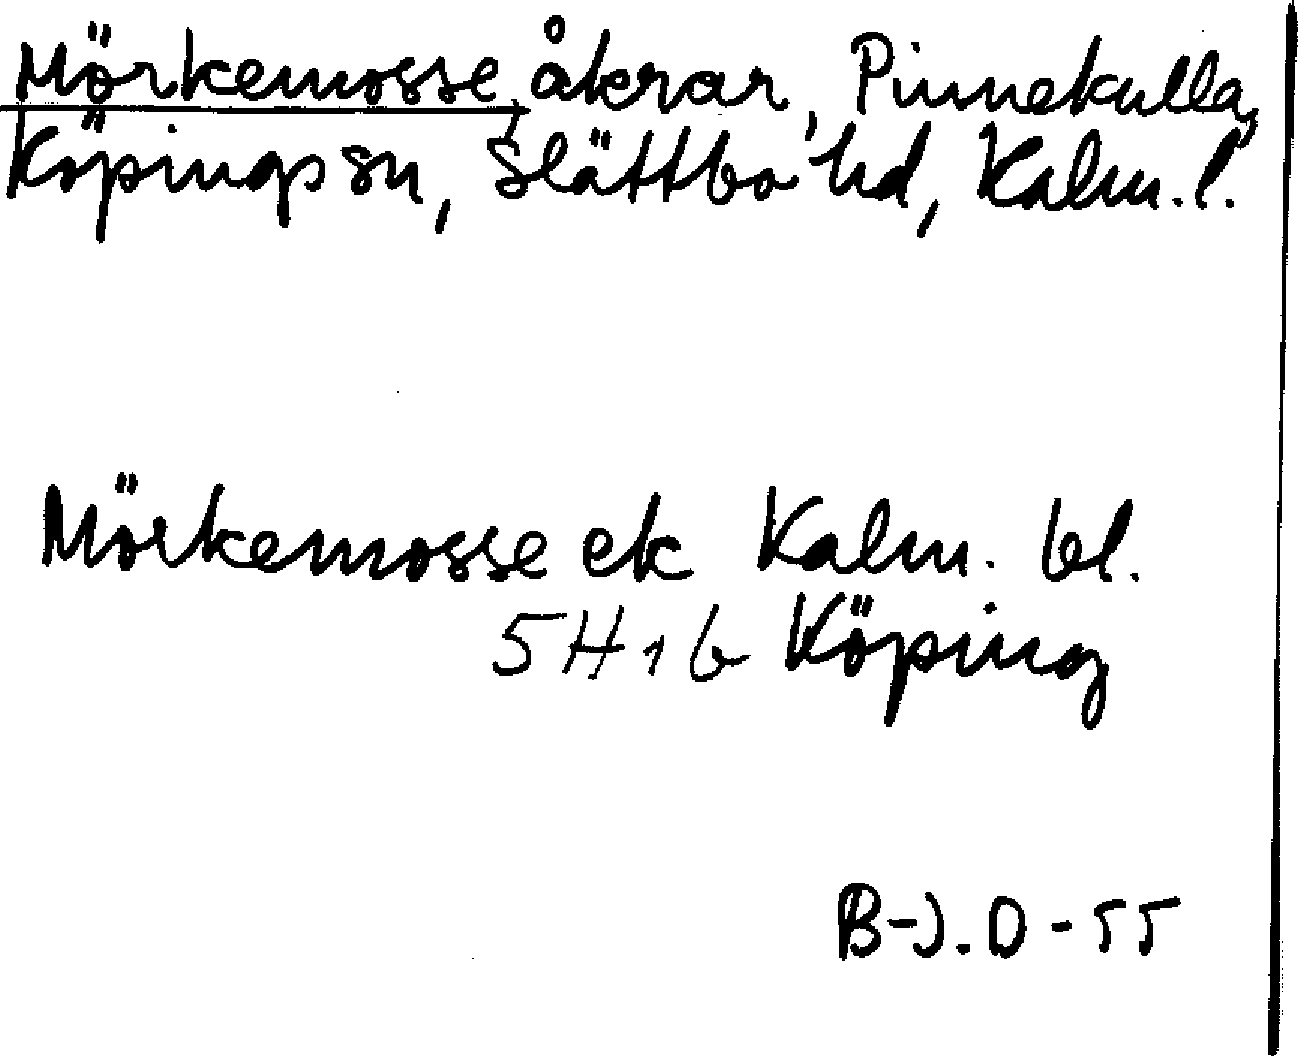 Mörkemosse, åkrar, Pinnekulla,
Köpings sn, Slättbo hd, Kalm. l.
Mörkemosse ek Kalm. bl.
5H1b Köping
B-J.D-55